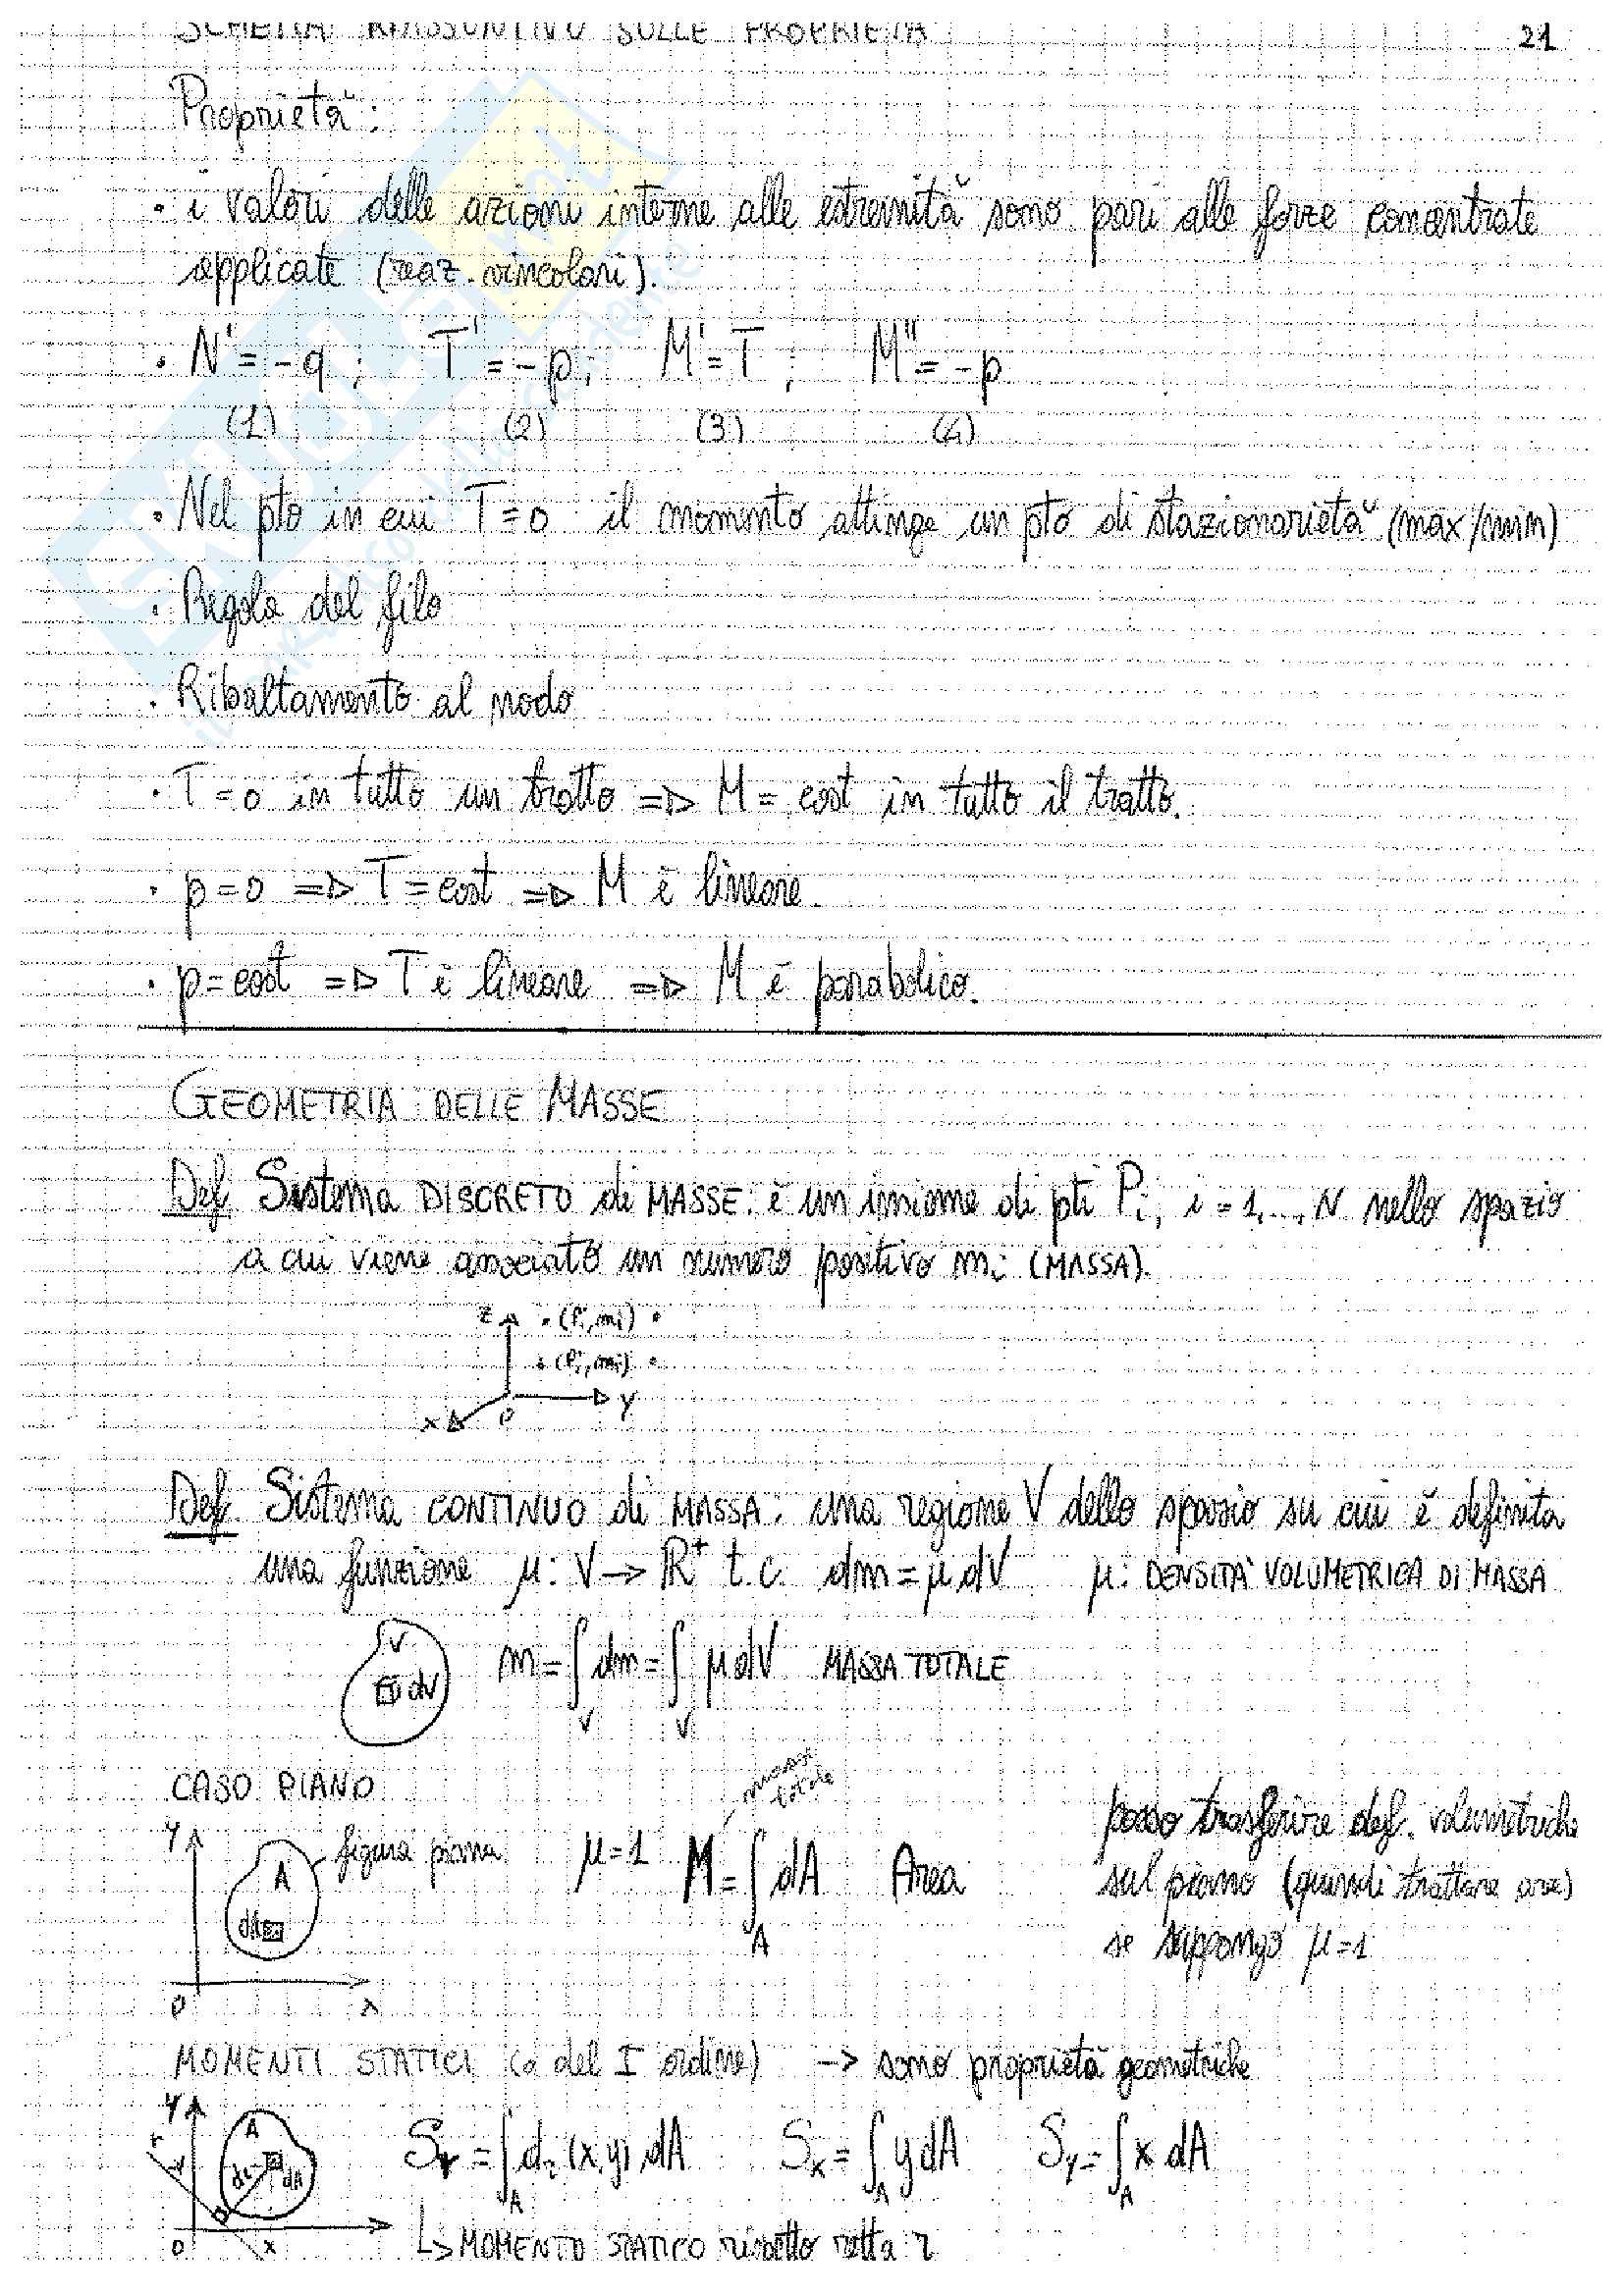 SCHEMA RIASSUNTIVO SULLE PROPRIETÀ
21
Proprietà:
• i valori delle azioni interne alle estremità sono pari alle forze concentrate
applicate (reaz. vincolari).
• N' = -q ; T' = -p ; M' = T ; M'' = -p
(1) (2) (3) (4)
• Nel pto in cui T = 0 il momento attinge un pto di stazionarietà (max/min)
• Regola del filo
• Ribaltamento al nodo
• T = 0 in tutto un tratto => M = cost in tutto il tratto.
• p = 0 => T = cost => M è lineare.
• p = cost => T è lineare => M è parabolico.
GEOMETRIA DELLE MASSE
Def Sistema DISCRETO di MASSE: è un insieme di pti Pi, i = 1,..., N nello spazio
a cui viene associato un numero positivo mi (MASSA).
z • (Pi, mi) •
• (Pi, mi) •
x O y
Def. Sistema CONTINUO di MASSA: una regione V dello spazio su cui è definita
una funzione μ: V → R⁺ t.c. dm = μ dV μ: DENSITÀ VOLUMETRICA DI MASSA
V dV m = ∫V dm = ∫V μ dV MASSA TOTALE
CASO PIANO
massa totale
y A figura piana μ = 1 M = ∫A dA Area
dA
O x
posso trasferire def. volumetriche
sul piano (quindi trattare aree)
se suppongo μ = 1
MOMENTI STATICI (o del I ordine) -> sono proprietà geometriche
y r A dr dA y x O
Sr = ∫A dr (x,y) dA Sx = ∫A y dA Sy = ∫A x dA
↳ MOMENTO STATICO rispetto retta r